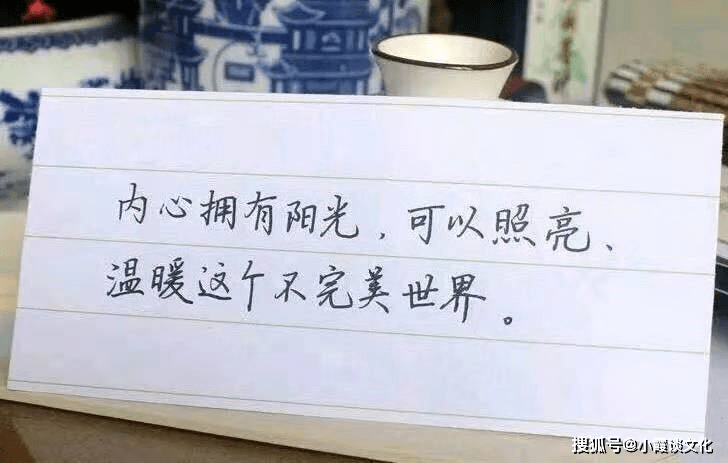 内心拥有阳光，可以照亮、
温暖这个不完美世界。
搜狐号@小霞谈文化